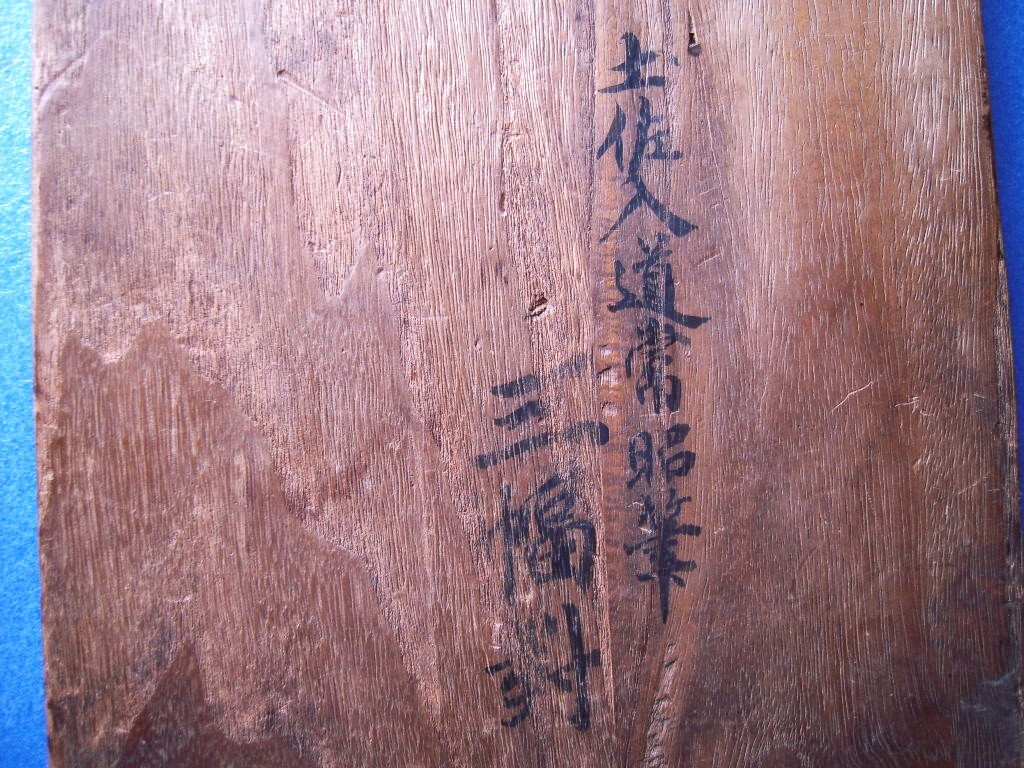 土佐入道常昭筆
三幅対